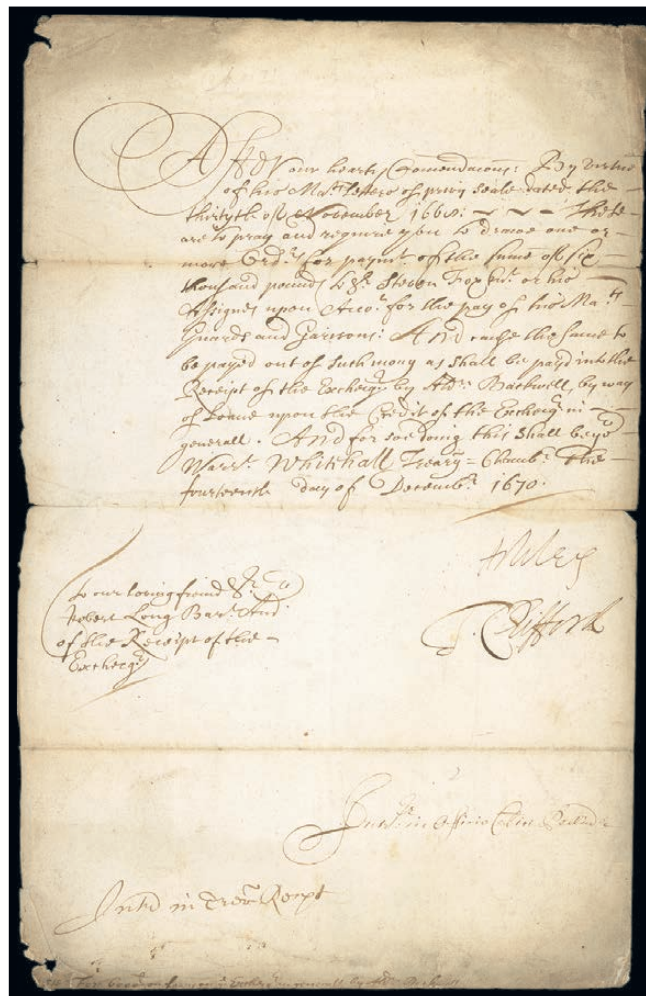 After our hearty Comendacons: By virtue
of his Mats letters of privy seale dated the
thirtyth of November 1668: ~ ~ ~ These
are to pray and require you to drawe one or
more Ordrs for paymt of the sume of six
thousand pounds to Sr Steven Fox Knt or his
Assignes upon Accot for the pay of his Mats
Guards and Garisons: And cause the same to
be payed out of such mony as shall be payd into the
Receipt of the Excheqr by Aldrn Backwell, by way
of Loane upon the Credit of the Excheqr in
generall. And for soe doing this shall be yor
Warrt Whitehall Treary = Chambr The
fourteenth day of Decembr 1670.
T Clifford
To our loving friend Sr
Robert Long Bart Audr
of the Receipt of the
Excheqr
in Officio
Intrd in Receipt